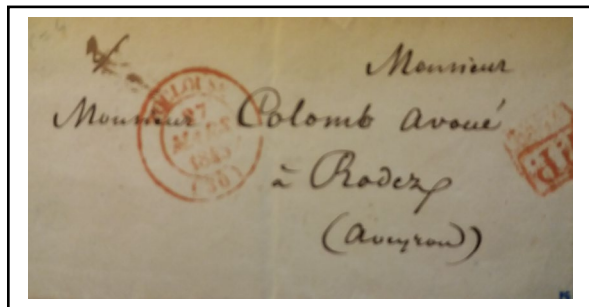 Monsieur
Monsieur Colomb avoué
à Rodez
(Aveyron)
TOULOUSE
27
MARS
(30)
P.P.